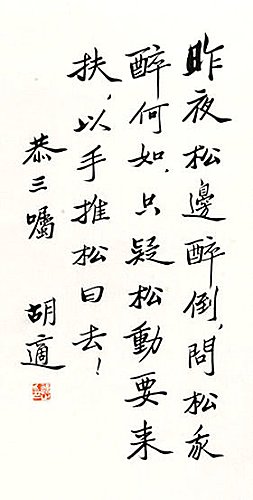 昨夜松邊醉倒，問松我
醉何如，只疑松動要来
扶，以手推松曰去！
恭三囑 胡適